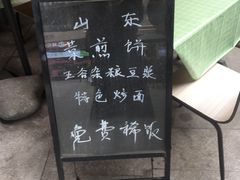 山东
菜煎饼
五谷杂粮豆浆
特色炒面
免费稀饭